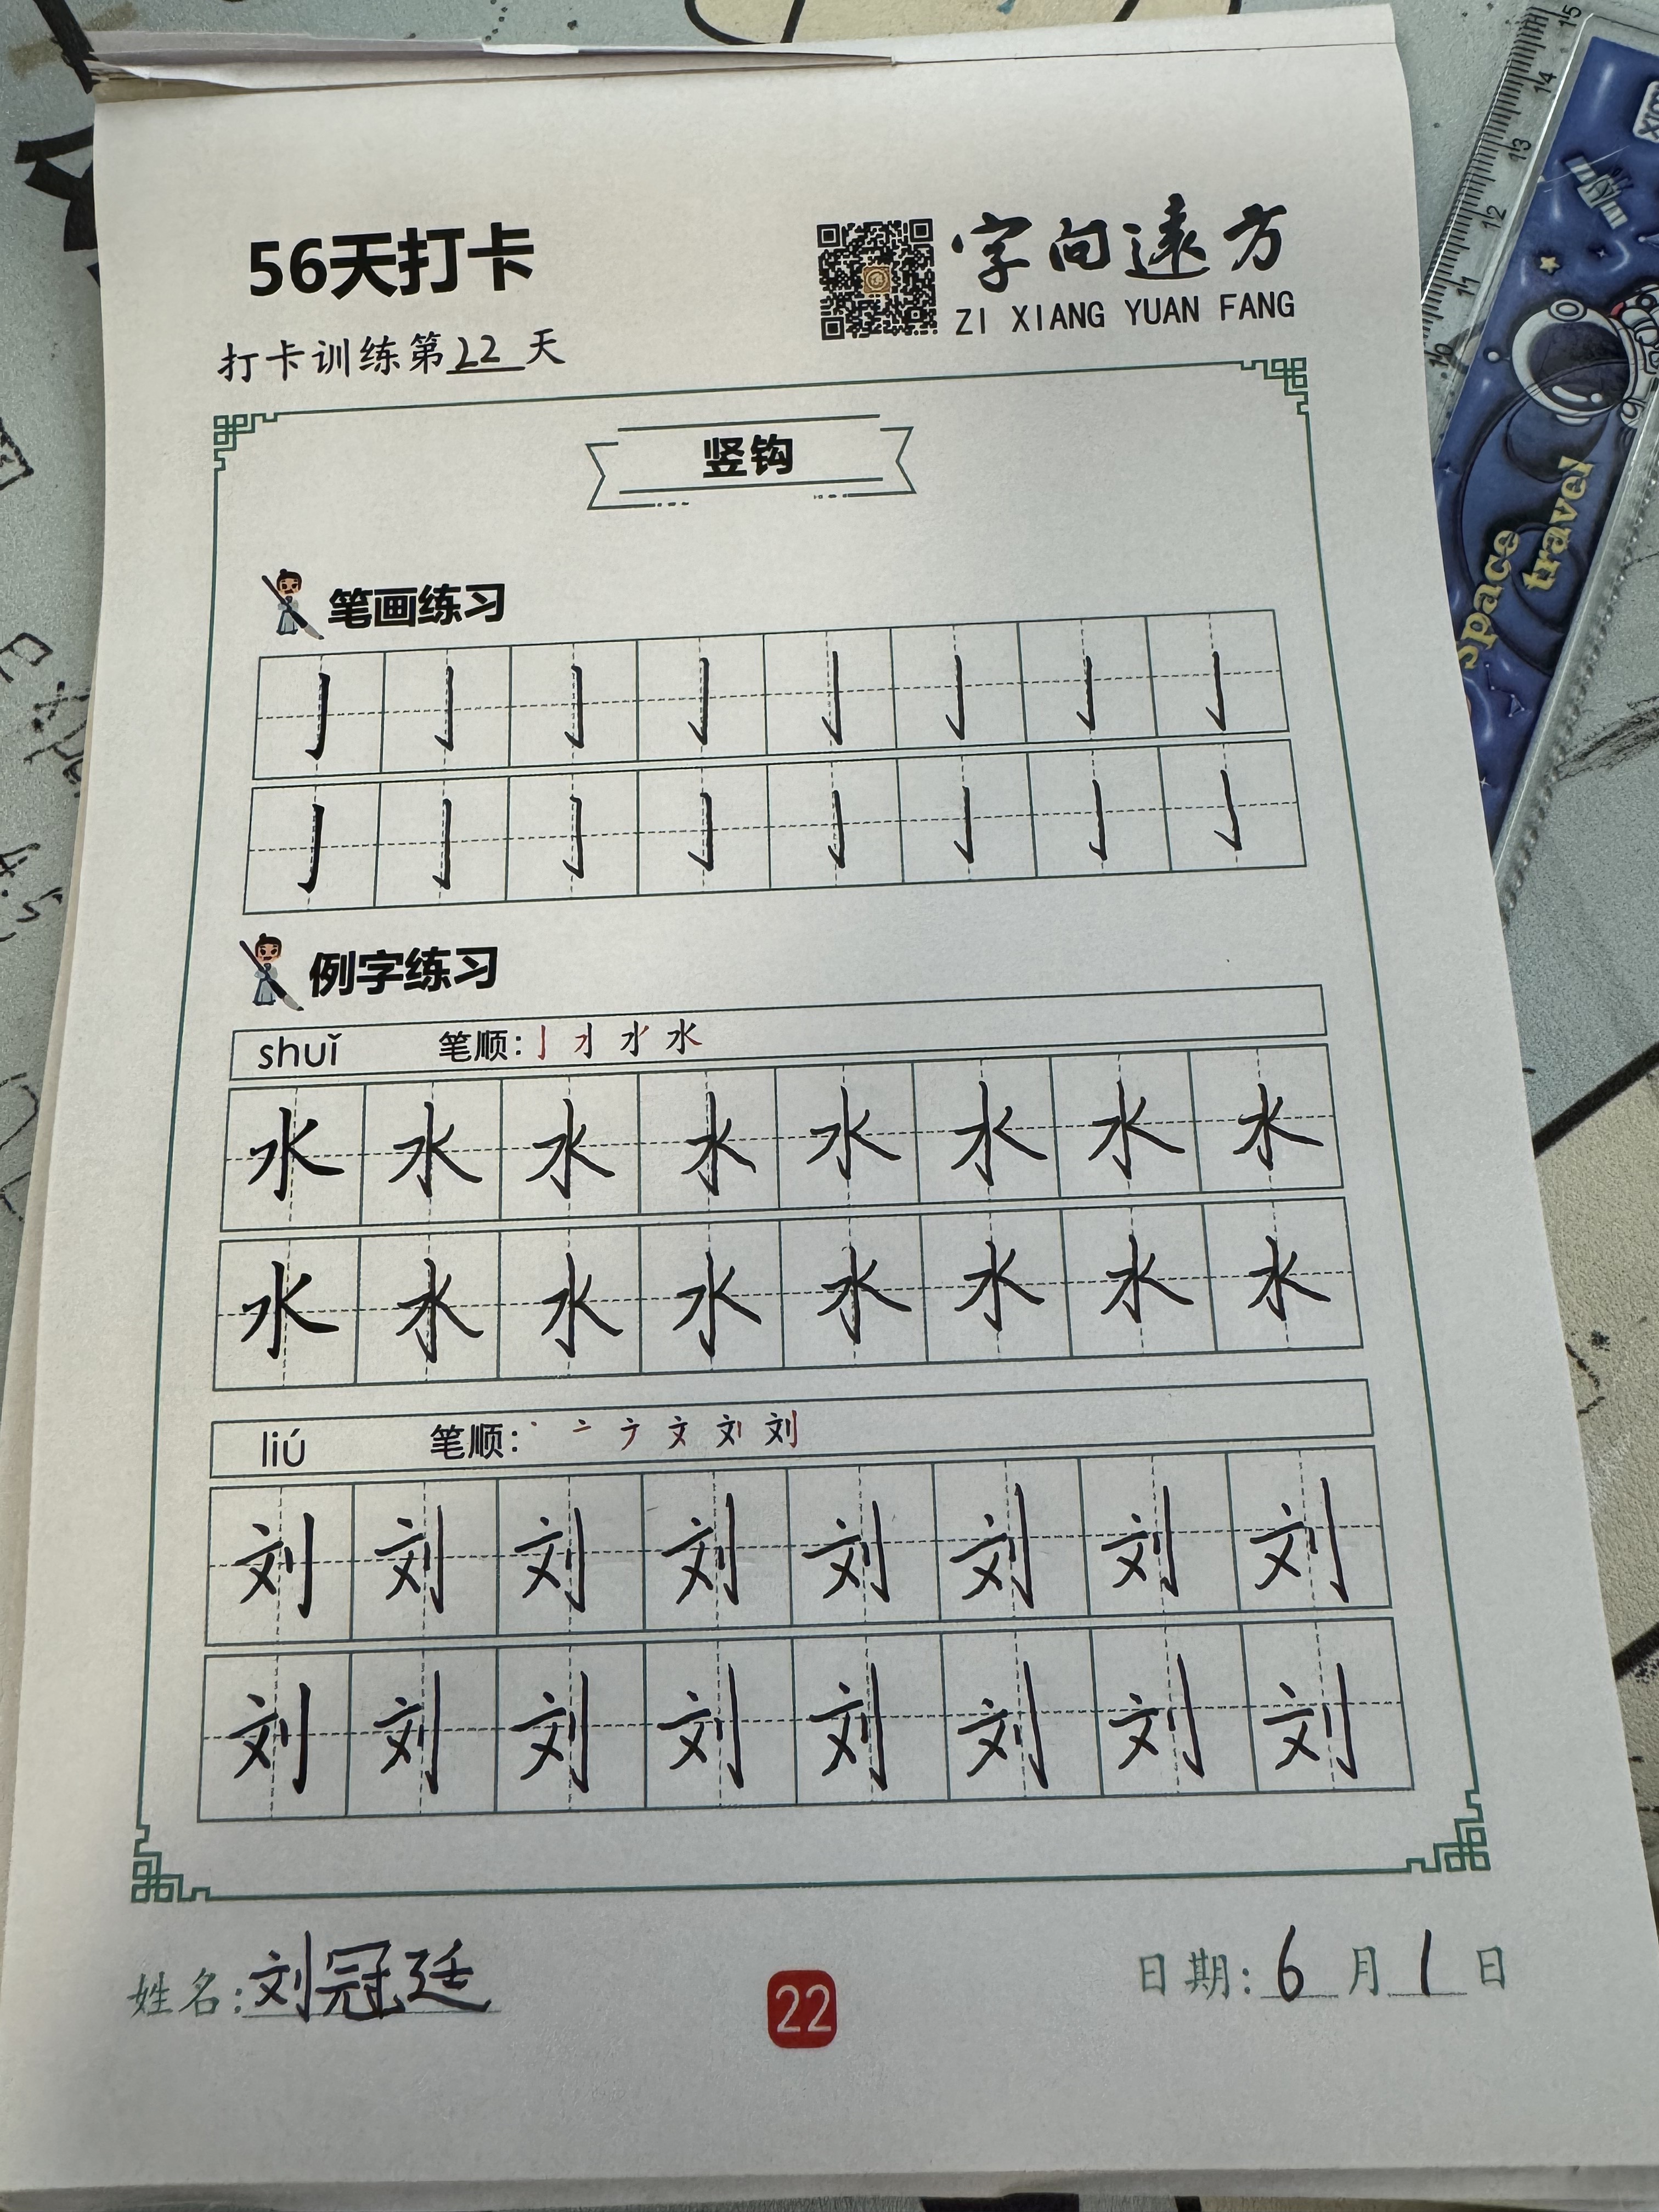 56天打卡
字向遠方
ZI XIANG YUAN FANG
打卡训练第22天
竖钩
笔画练习
亅 亅 亅 亅 亅 亅 亅 亅
亅 亅 亅 亅 亅 亅 亅 亅
例字练习
shuǐ 笔顺:
水 水 水 水 水 水 水 水
水 水 水 水 水 水 水 水
liú 笔顺:
刘 刘 刘 刘 刘 刘 刘 刘
刘 刘 刘 刘 刘 刘 刘 刘
姓名:刘冠廷
22
日期:6月1日
10 11 12 13 14 15
space
travel